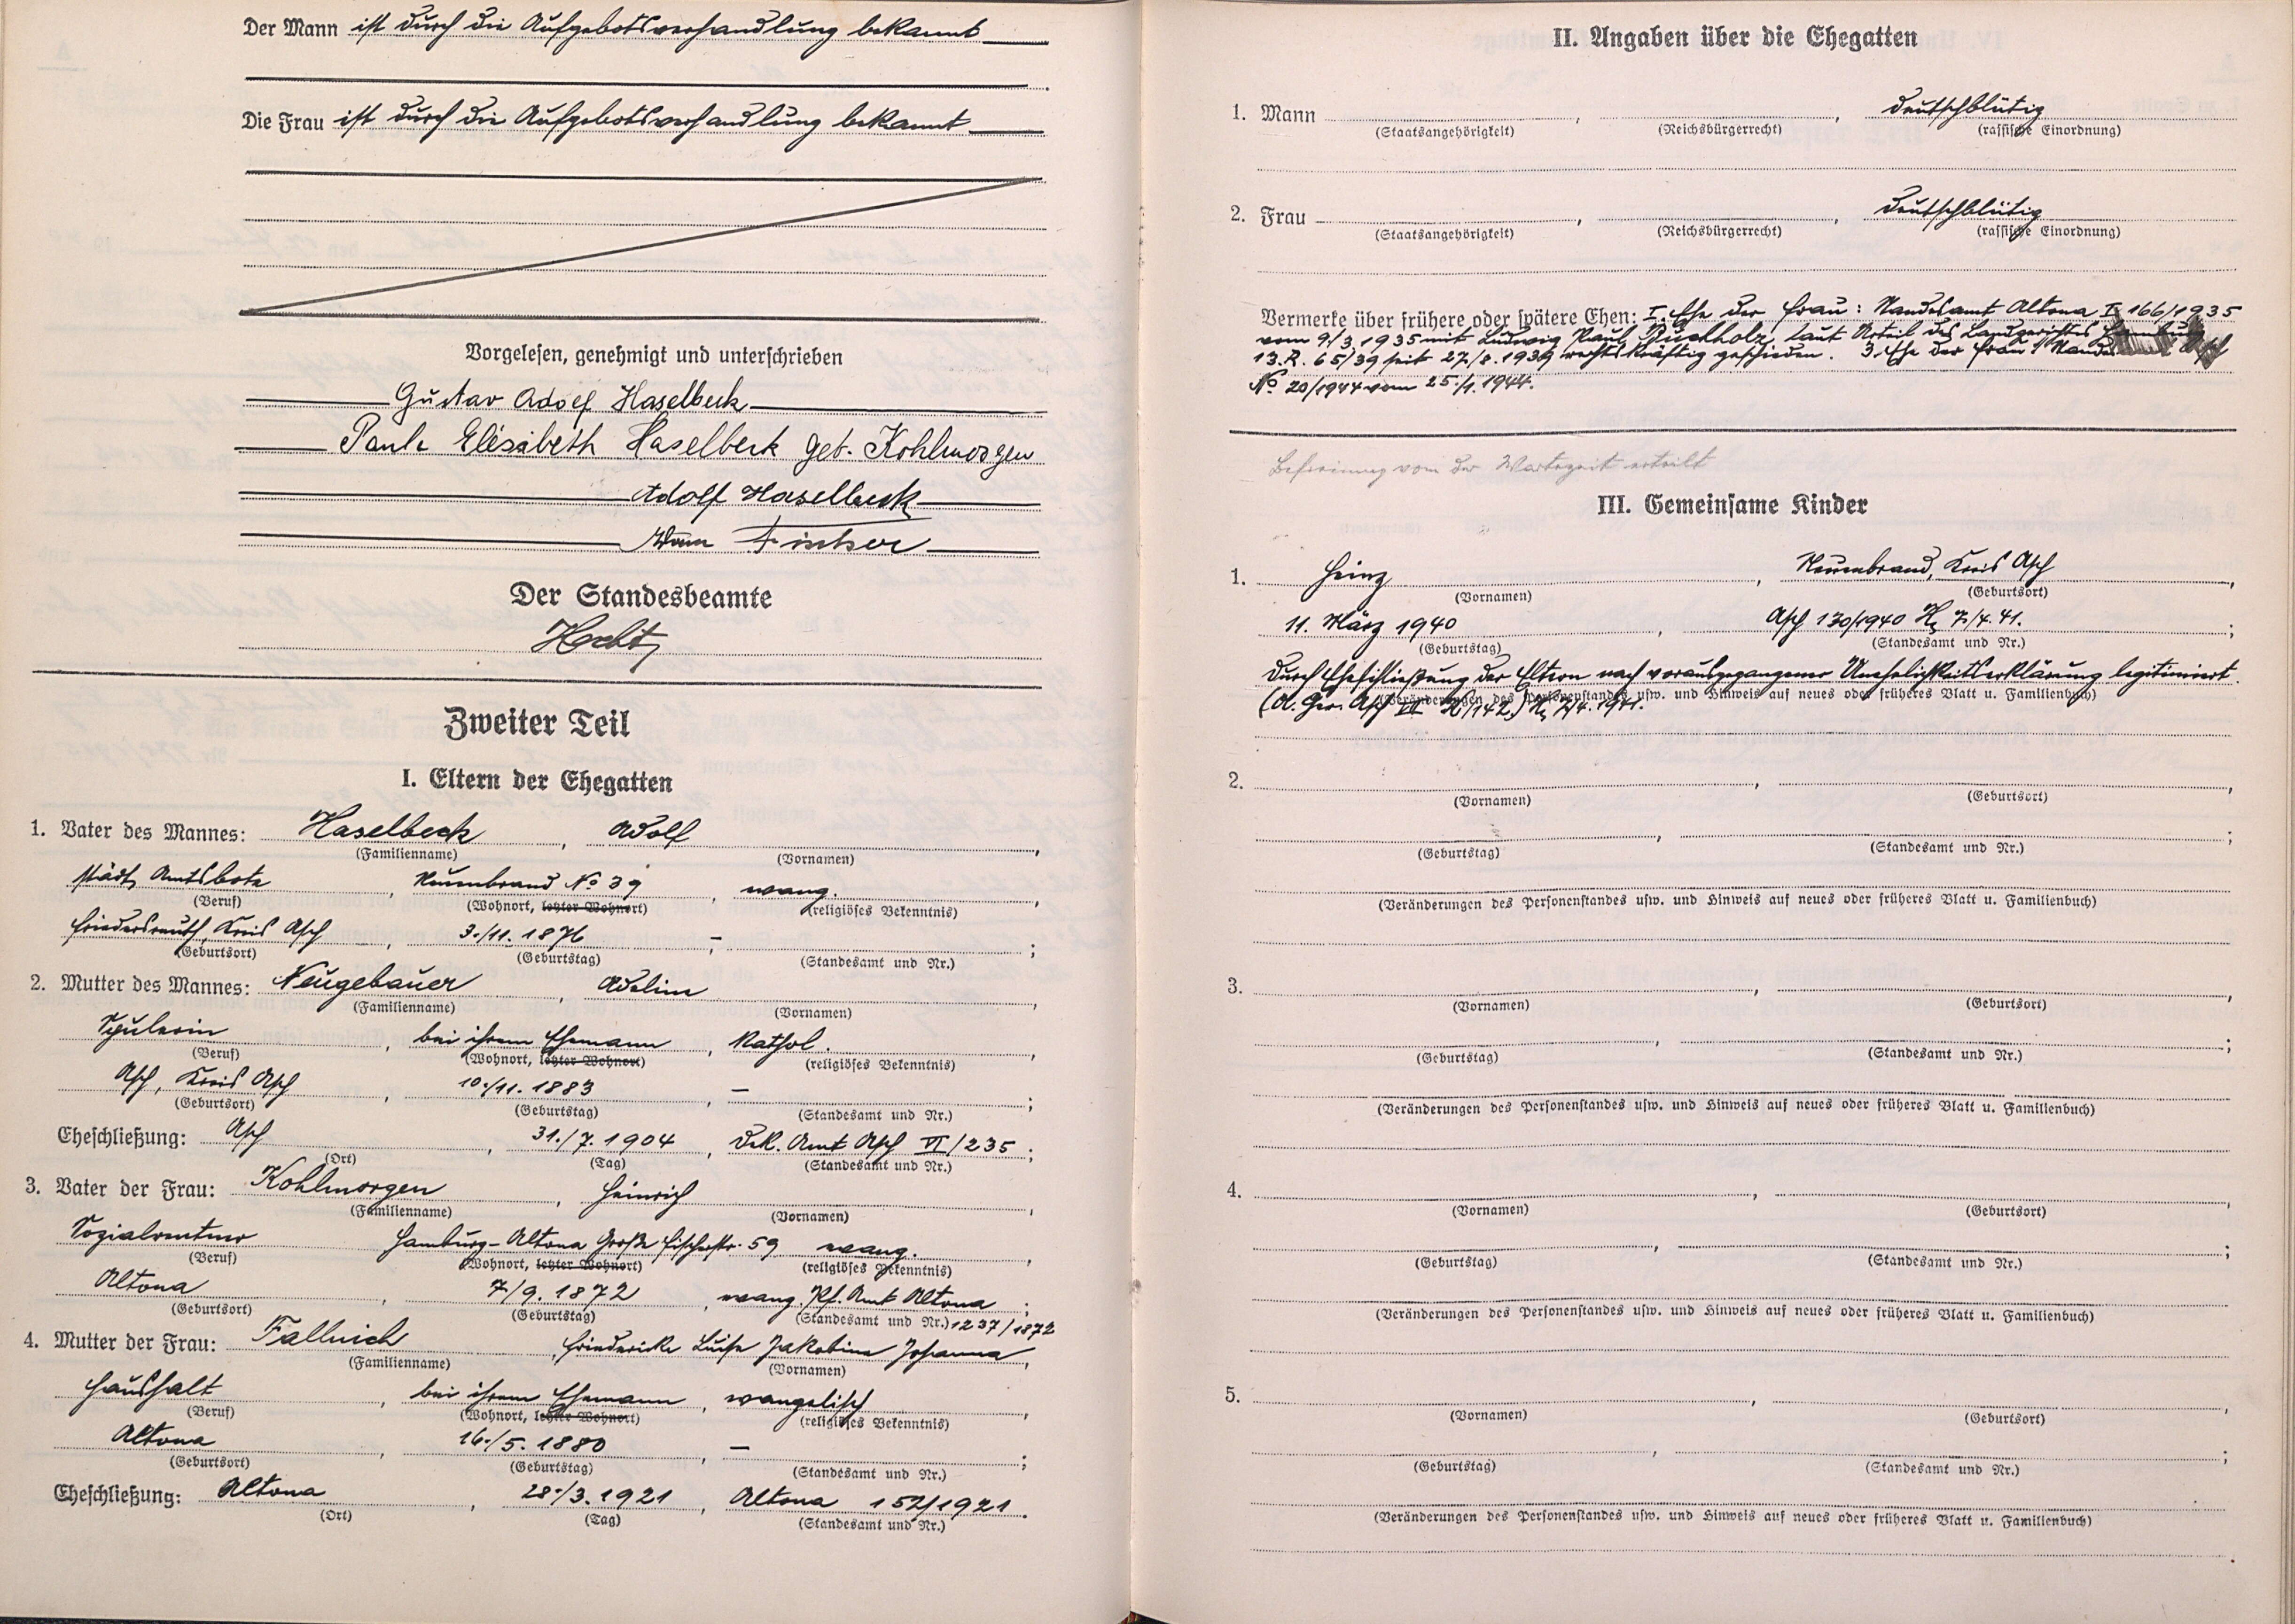 Der Mann ist durch die Aufgebotsverhandlung bekannt
Die Frau ist durch die Aufgebotsverhandlung bekannt
Vorgelesen, genehmigt und unterschrieben
Gustav Adolf Haselbeck
Paula Elisabeth Haselbeck geb. Kohlmorgen
Adolf Haselbeck
Fischer
Der Standesbeamte
Zweiter Teil
I. Eltern der Ehegatten
1. Vater des Mannes: Haselbeck, Adolf,
(Familienname) (Vornamen)
städt. Amtsbote, Neuenbrand No 39, evang.,
(Beruf) (Wohnort, letzter Wohnort) (religiöses Bekenntnis)
Friedersreuth, Kreis Asch, 3./11. 1876, – ;
(Geburtsort) (Geburtstag) (Standesamt und Nr.)
2. Mutter des Mannes: Neugebauer, Adeline,
(Familienname) (Vornamen)
Spulerin, bei ihrem Ehemann, kathol.,
(Beruf) (Wohnort, letzter Wohnort) (religiöses Bekenntnis)
Asch, Kreis Asch, 10./11. 1883, – ;
(Geburtsort) (Geburtstag) (Standesamt und Nr.)
Eheschließung: Asch, 31./7. 1904, Dek. Amt Asch VI/235;
(Ort) (Tag) (Standesamt und Nr.)
3. Vater der Frau: Kohlmorgen, Heinrich,
(Familienname) (Vornamen)
Sozialrentner Hamburg-Altona Große Fischerstr. 59 evang.,
(Beruf) (Wohnort, letzter Wohnort) (religiöses Bekenntnis)
Altona, 7/9. 1872, evang. Pf. Amt Altona;
(Geburtsort) (Geburtstag) (Standesamt und Nr.) 1237/1872
4. Mutter der Frau: Fallnich, Friedericke Luise Jakobine Johanna,
(Familienname) (Vornamen)
Haushalt, bei ihrem Ehemann, evangelisch,
(Beruf) (Wohnort, letzter Wohnort) (religiöses Bekenntnis)
Altona, 16./5. 1880, – ;
(Geburtsort) (Geburtstag) (Standesamt und Nr.)
Eheschließung: Altona, 28./3. 1921, Altona 152/1921.
(Ort) (Tag) (Standesamt und Nr.)
II. Angaben über die Ehegatten
1. Mann , , deutschblütig
(Staatsangehörigkeit) (Reichsbürgerrecht) (rassische Einordnung)
2. Frau , , deutschblütig
(Staatsangehörigkeit) (Reichsbürgerrecht) (rassische Einordnung)
Vermerke über frühere oder spätere Ehen: I. Ehe der Frau: Standesamt Altona I 166/1935
vom 9./3. 1935 mit Ludwig Paul Buchholz, laut Urteil des Landgerichtes Hamburg
13. R. 65/39 seit 27./8. 1939 rechtskräftig geschieden. 3. Ehe der Frau: Asch
No 20/1944 vom 25./1. 1944.
Befreiung von der Wartezeit erteilt
III. Gemeinsame Kinder
1. Heinz, Neuenbrand, Kreis Asch,
(Vornamen) (Geburtsort)
11. März 1940, Asch 130/1940 7/4. 41.;
(Geburtstag) (Standesamt und Nr.)
Durch Eheschließung der Eltern nach vorausgegangener Unehelichkeitserklärung legitimiert.
(Veränderungen des Personenstandes usw. und Hinweis auf neues oder früheres Blatt u. Familienbuch)
(A. Ger. Asch VIII 142.) 7/4. 1941.
2. , ,
(Vornamen) (Geburtsort)
, ;
(Geburtstag) (Standesamt und Nr.)
(Veränderungen des Personenstandes usw. und Hinweis auf neues oder früheres Blatt u. Familienbuch)
3. , ,
(Vornamen) (Geburtsort)
, ;
(Geburtstag) (Standesamt und Nr.)
(Veränderungen des Personenstandes usw. und Hinweis auf neues oder früheres Blatt u. Familienbuch)
4. , ,
(Vornamen) (Geburtsort)
, ;
(Geburtstag) (Standesamt und Nr.)
(Veränderungen des Personenstandes usw. und Hinweis auf neues oder früheres Blatt u. Familienbuch)
5. , ,
(Vornamen) (Geburtsort)
, ;
(Geburtstag) (Standesamt und Nr.)
(Veränderungen des Personenstandes usw. und Hinweis auf neues oder früheres Blatt u. Familienbuch)